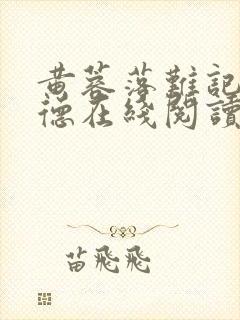 黄蓉落難記
德在綫閱讀
苗飛飛